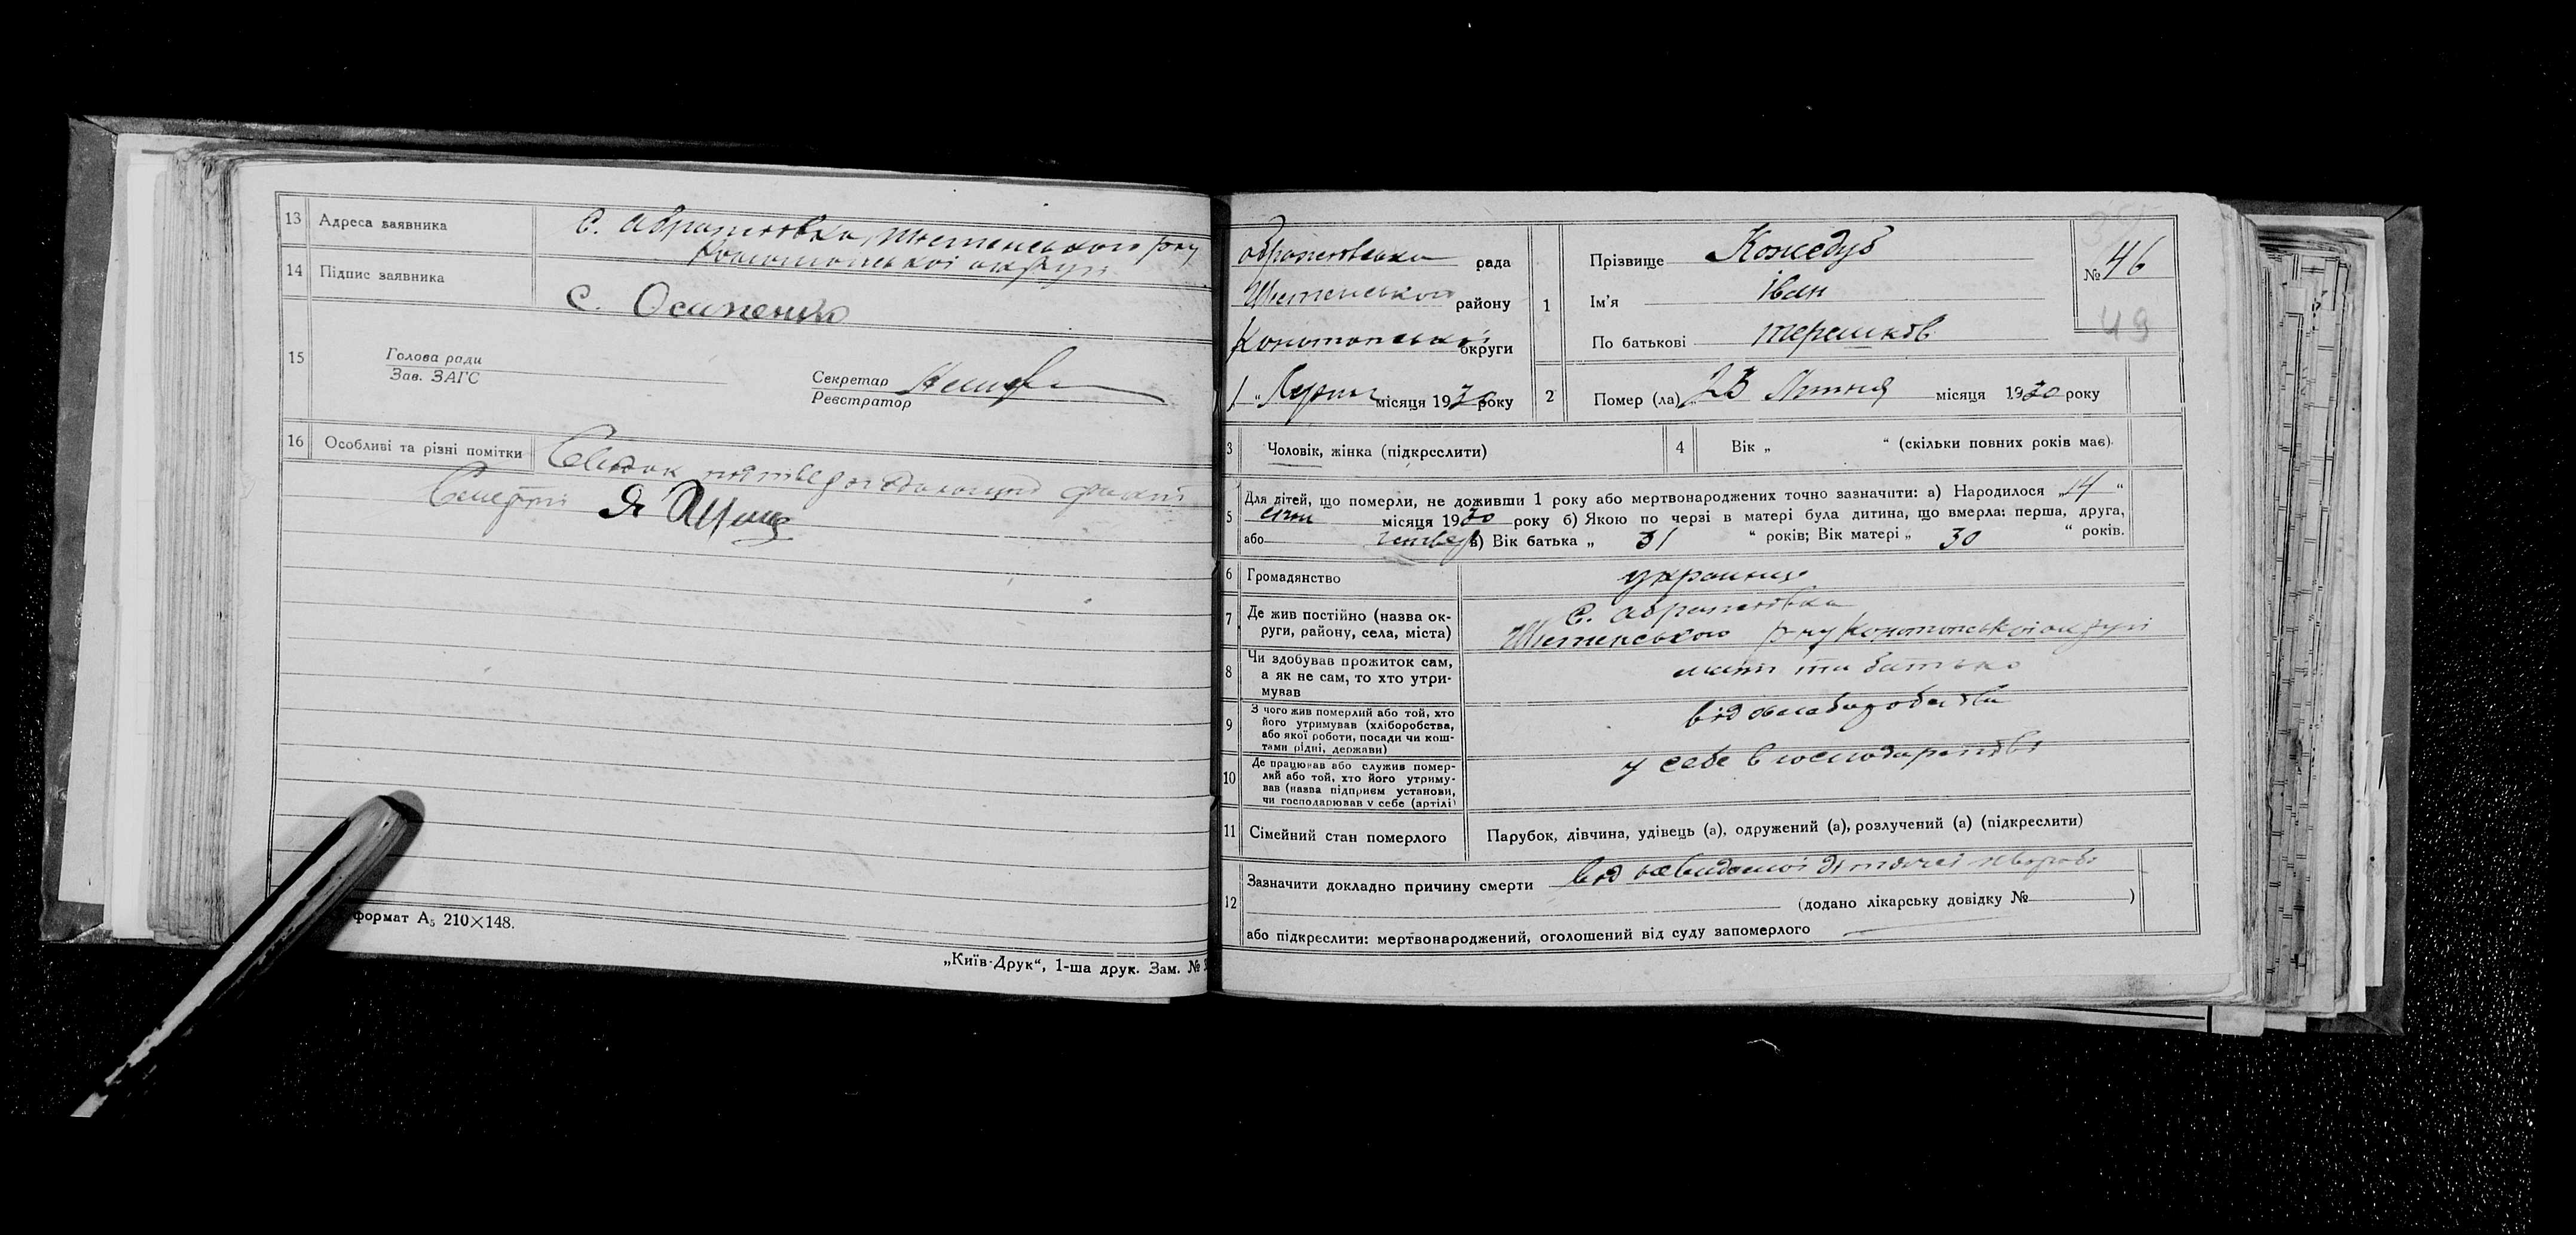 13 Адреса заявника
с. Обратовка, Шостенського р-ну
Конотопської округи
14 Підпис заявника
С. Осипенко
15 Голова ради
Зав. ЗАГС
Секретар
Реєстратор
16 Особливі та різні помітки
Свідок
Смерти Я
формат А5 210×148.
„Київ-Друк“, 1-ша друк. Зам. №
рада
Шостенського району
Конотопської округи
1 „ Серпня місяця 1930 року
1
Прізвище Кожедуб
Ім’я Іван
По батькові
№ 46
49
2 Помер (ла) 23 Липня місяця 1930 року
3 Чоловік, жінка (підкреслити)
4 Вік „ “ (скільки повних років має).
5 Для дітей, що померли, не доживши 1 року або мертвонароджених точно зазначити: а) Народилося „14“
січня місяця 1930 року б) Якою по черзі в матері була дитина, що вмерла: перша, друга,
або четвер в) Вік батька „ 31 “ років; Вік матері „ 30 “ років.
6 Громадянство українець
7 Де жив постійно (назва ок-
руги, району, села, міста)
с.
Шостенського р-ну Конотопської округи
8 Чи здобував прожиток сам,
а як не сам, то хто утри-
мував
мати та батько
9 З чого жив померлий або той, хто
його утримував (хліборобства,
або якої роботи, посади чи кош-
тами рідні, держави)
від хліборобства
10 Де працював або служив помер-
лий або той, хто його утриму-
вав (назва підприєм установи,
чи господарював у себе (артілі)
у себе в господарстві
11 Сімейний стан померлого
Парубок, дівчина, удівець (а), одружений (а), розлучений (а) (підкреслити)
12 Зазначити докладно причину смерти від невидомої дитячої хвороби
(додано лікарську довідку № )
або підкреслити: мертвонароджений, оголошений від суду запомерлого